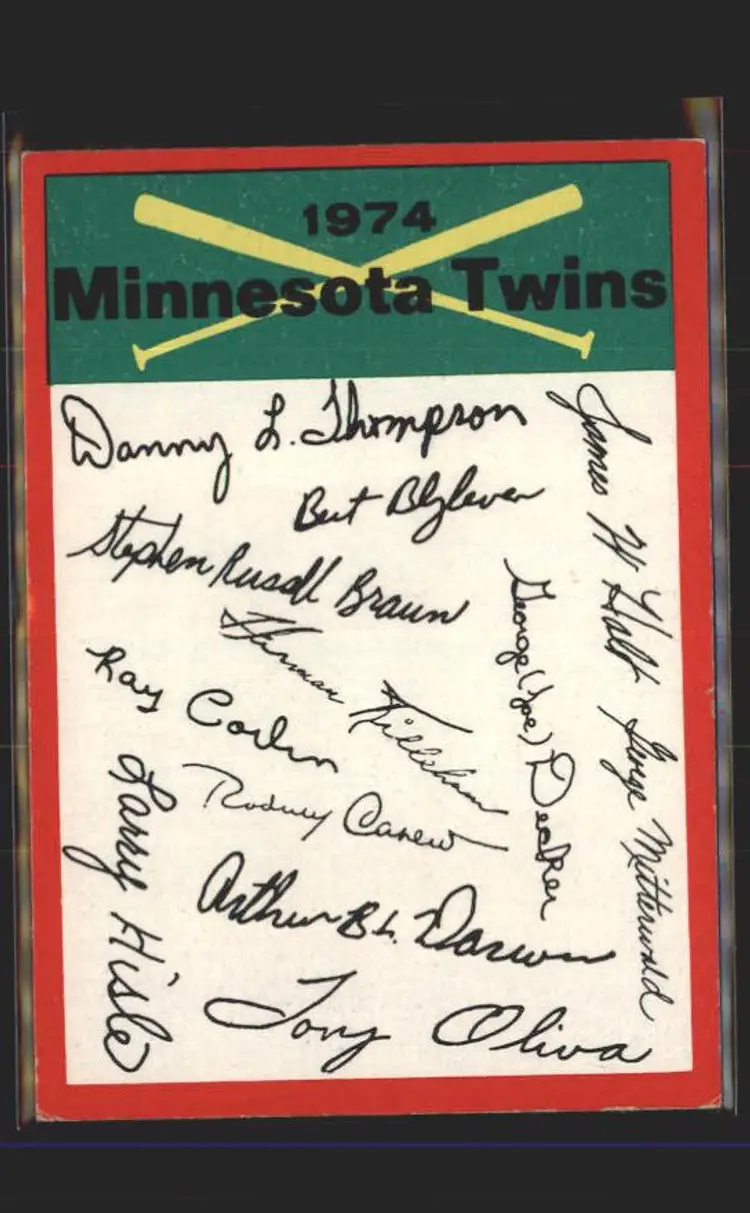 1974
Minnesota Twins
Danny L. Thompson
Bert Blyleven
Stephen Russell Braun
James W Holt
Herman Killebrew
George (Joe) Decker
Ray Corbin
George Mitterwald
Larry Hisle
Rodney Carew
Arthur B L. Darwin
Tony Oliva